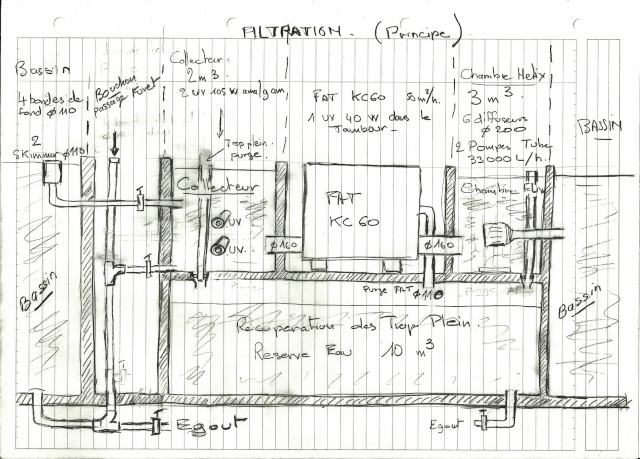 FILTRATION. (Principe)
Bassin
4 bondes de
fond ø110
2
Skimmer ø110
Bouchon
passage Furet
Collecteur
2 m3
2 UV 105 W amalgam
Trop plein
purge.
Collecteur
UV
UV.
FAT KC60 50 m3/h.
1 UV 40 W dans le
Tambour
FAT
KC 60
ø160
ø160
Purge FAT ø110
Chambre Helix
3 m3
6 diffuseurs
ø 200
2 Pompes Tube
33000 L/h.
Chambre
BASSIN
Bassin
Bassin
Recuperation des Trop Plein.
Reserve Eau 10 m3
Egout
Egout